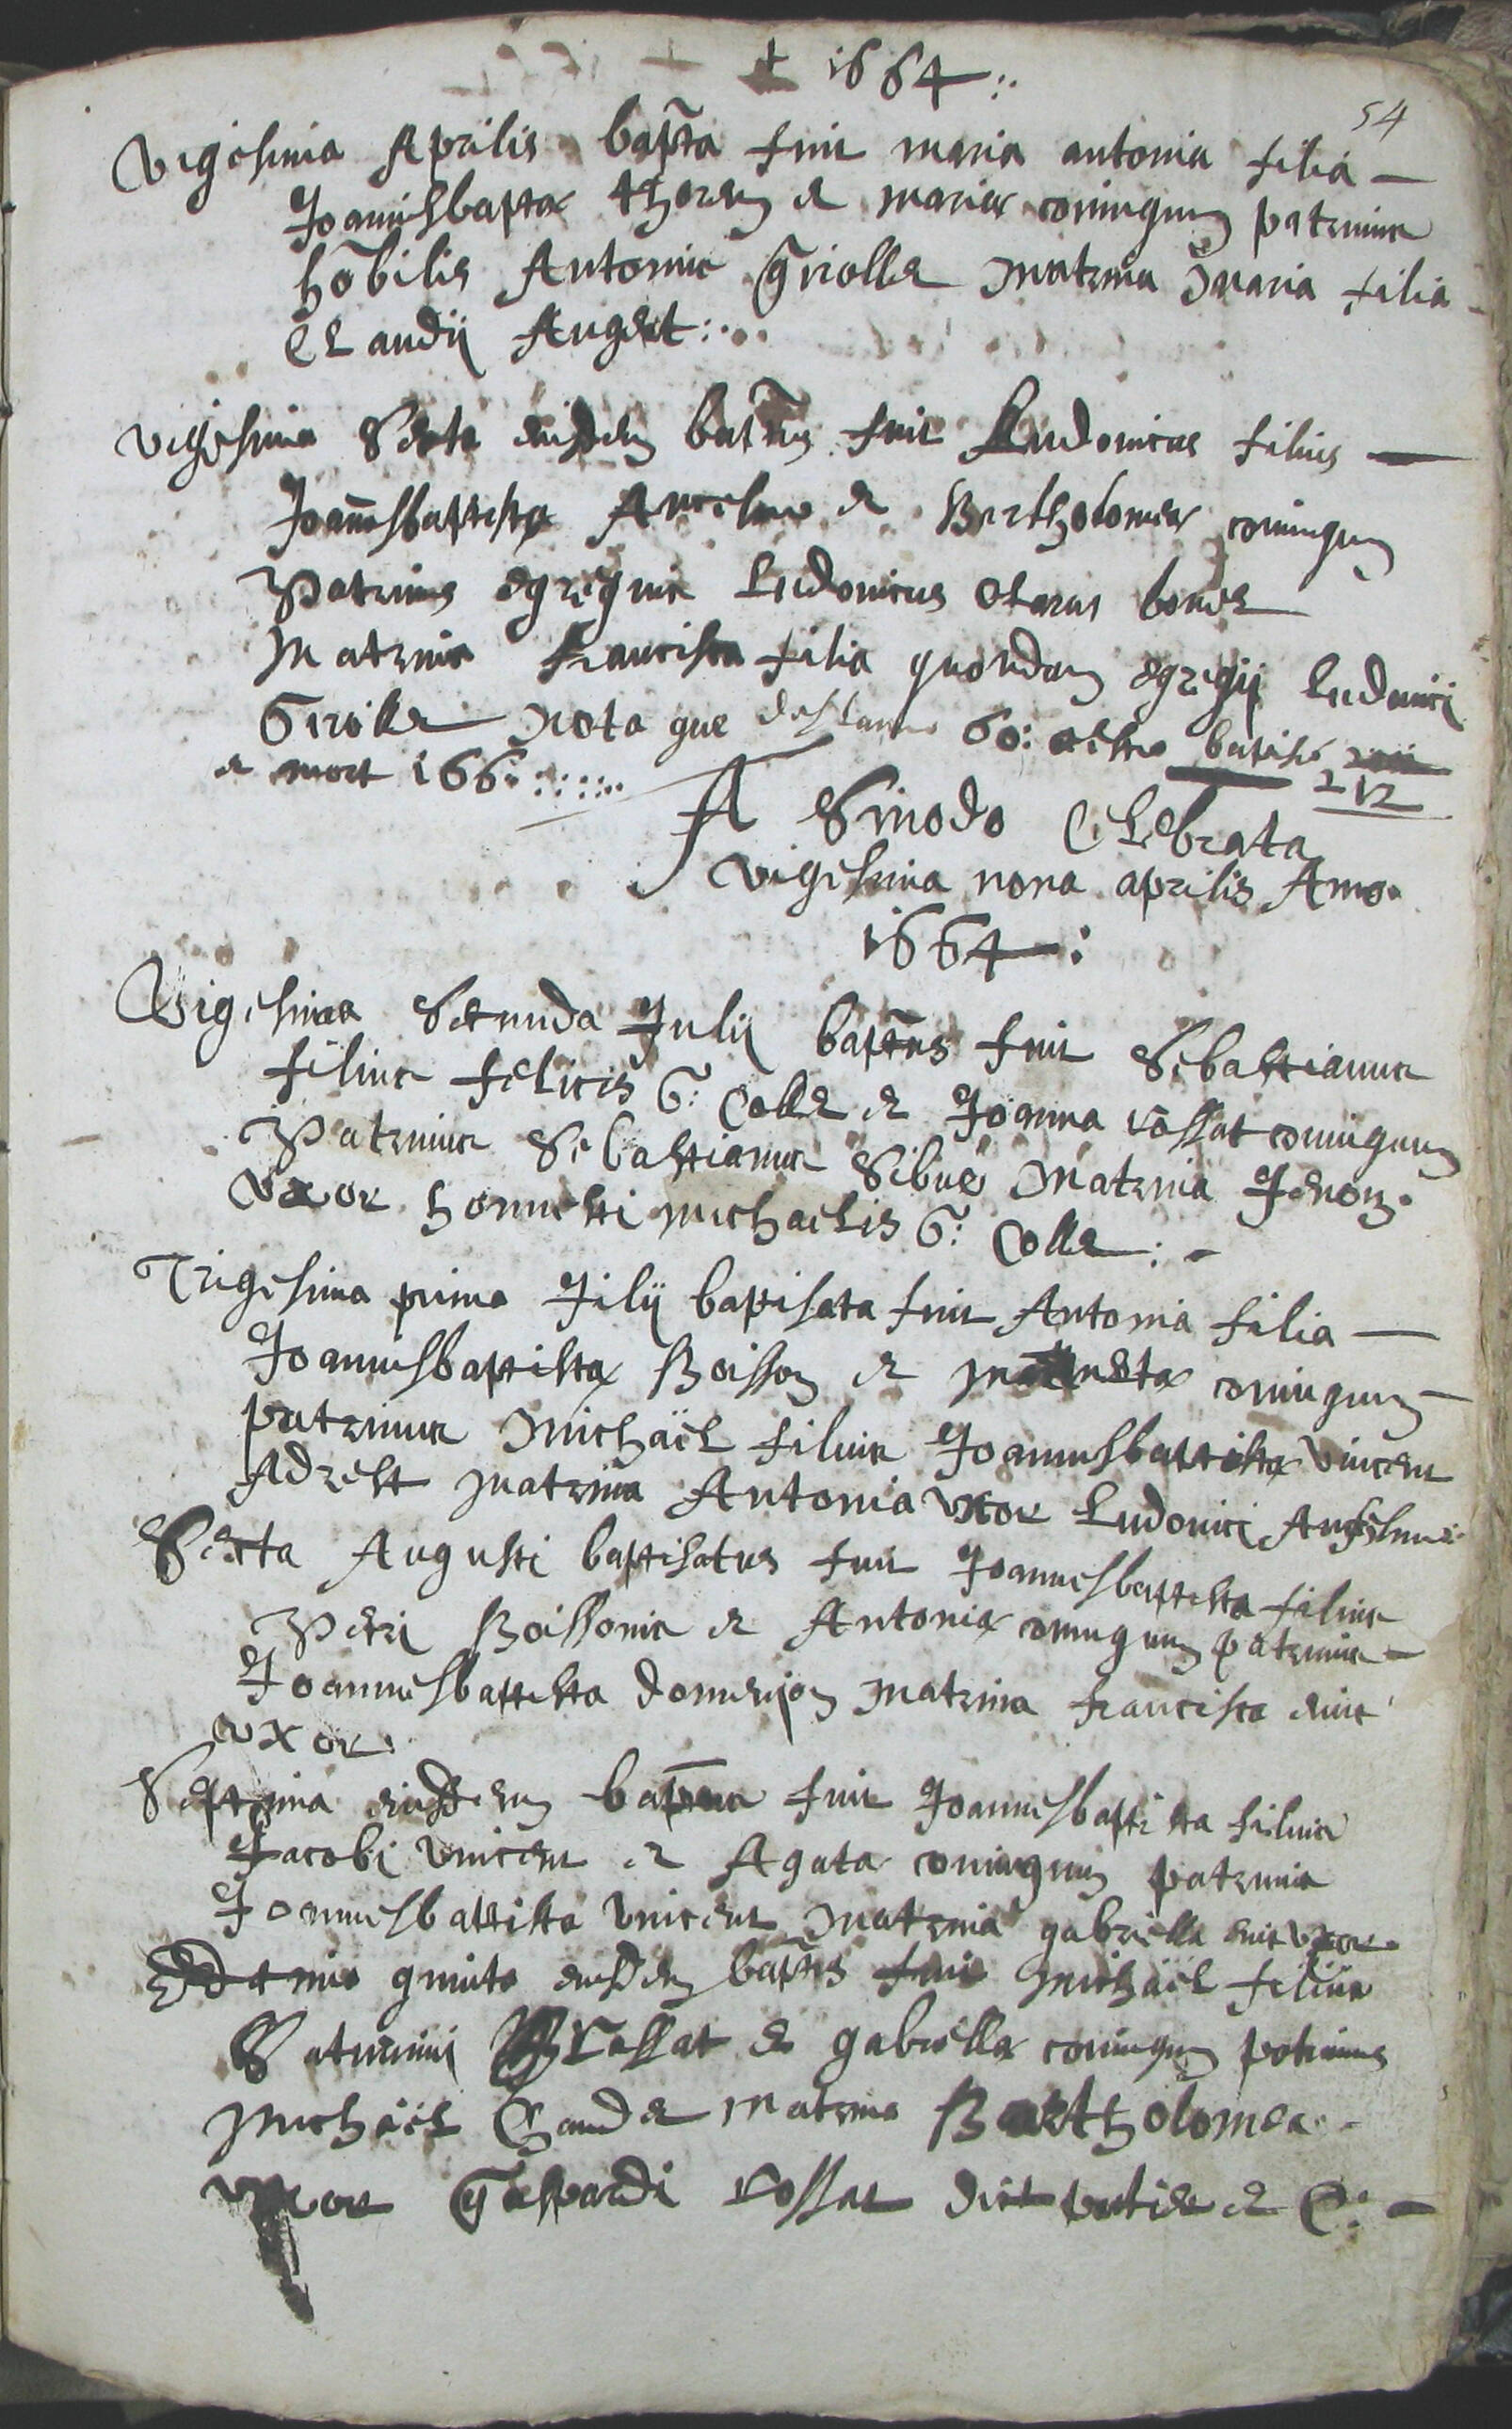 + 1664 :
54
Vigesima Aprilis bapta fuit maria antonia filia —
Joannisbaptæ thorem et mariæ coniugum patrinus
hobilis Antonius Griolle Matrina Maria filia
Claudij Augert :
vigesima Sexta eiusdem batus fuit Ludovicus filius —
Joannisbaptistæ Ancelme et Bartholomeæ coniugum
Patrinus egregius Ludovicus
Matrina Francisca filia quondam egregij Ludovici
Griolle Nota que 60: batise
212
et mort 166
A Sinodo Celebrata
vigesima nona aprilis Anno
1664 :
Vigesima Secunda Julij baptus fuit Sebastianus
filius felicis G: Colle et Joanna rossat coniugum
Patrinus Sebastianus Sibue Matrina
Vxor honnesti michaelis G: Colle : -
Trigesima prima Jilij baptisata fuit Antonia filia —
Joannisbaptistæ Boisson et coniugum —
patrinus Michaël filius Joannisbaptistæ Vincent
Adrest Matrina Antonia Vxor Ludovici
Sexta Augusti baptisatus fuit Joannesbaptista filius
Petri Boissonis et Antoniæ coniugum patrinus —
Joannesbattesta matrina francisca eius
vxor.
Septima eiusdem baptus fuit Joannesbaptista filius
Jacobi Vincent et Agata coniugum patrinus
Joannesbattista Vincent Matrina gabriella eius vxor.
quinta eiusdem baptus fuit Michaël filius
Saturnini rossat et gabriellæ coniugum patrinus
Michaël matrina Bartholomea. -
vxor Gaspardi rossat dict et C: —